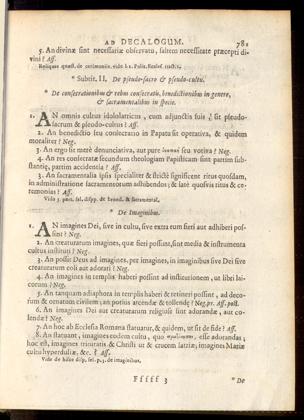 AD DECALOGUM. 781
5. An divinæ sint necessariæ observatu, saltem necessitate præcepti di-
vini? Aff.
Reliquas quæst. de cerimoniis vide l. 2. Polit. Eccles. tract. 1.
* Subtit. II. De pseudo-sacro & pseudo-cultu.
* De consecrationibus & rebus consecratis, benedictionibus in genere,
& sacramentalibus in specie.
1. AN omnis cultus idololatricus, cum adjunctis suis, sit pseudo-
sacrum & pseudo-cultus? Aff.
2. An benedictio seu consecratio in Papatu sit operativa, & quidem
moraliter? Neg.
3. An ergo sit mere denunciativa, aut pure seu votiva? Neg.
4. An res consecratæ secundum theologiam Papisticam sint partim sub-
stantiæ, partim accidentia? Aff.
5. An sacramentalia ipsis specialiter & stricte significent ritus quosdam,
in administratione sacramentorum adhibendos; & late quosvis ritus & ce-
remonias? Aff.
Vide 3. part. sel. disp. de bened. & sacramental.
* De Imaginibus.
1. AN imagines Dei, sive in cultu, sive extra eum fieri aut adhiberi pos-
sint? Neg.
2. An creaturarum imagines, quæ fieri possint, sint media & instrumenta
cultus instituti? Neg.
3. An possit Deus ad imagines, per imagines, in imaginibus sive Dei sive
creaturarum coli aut adorari? Neg.
4. An imagines in templis haberi possint ad institutionem, ut libri lai-
corum? Neg.
5. An tanquam adiaphora in templis haberi & retineri possint, ad deco-
rum & ornatum civilem; an potius arcendæ & tollendæ? Neg. pr. Aff. post.
6. An imagines Dei aut creaturarum religiose sint adorandæ, aut co-
lendæ? Neg.
7. An hoc ab Ecclesia Romana statuatur, & quidem, ut sit de fide? Aff.
8. An statuant, imagines eodem cultu, quo esse adorandas;
hoc est, imagines triunitatis & Christi ut & crucem latriæ; imagines Mariæ
cultu hyperduliæ, &c.? Aff.
Vide de hisce disp. sel. p. 3. de imaginibus.
Fffff 3 * De